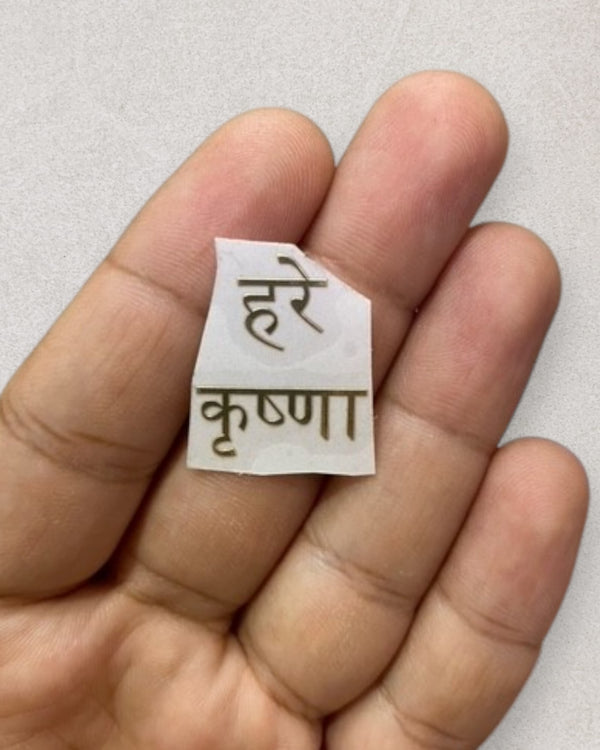 हरे
कृष्णा